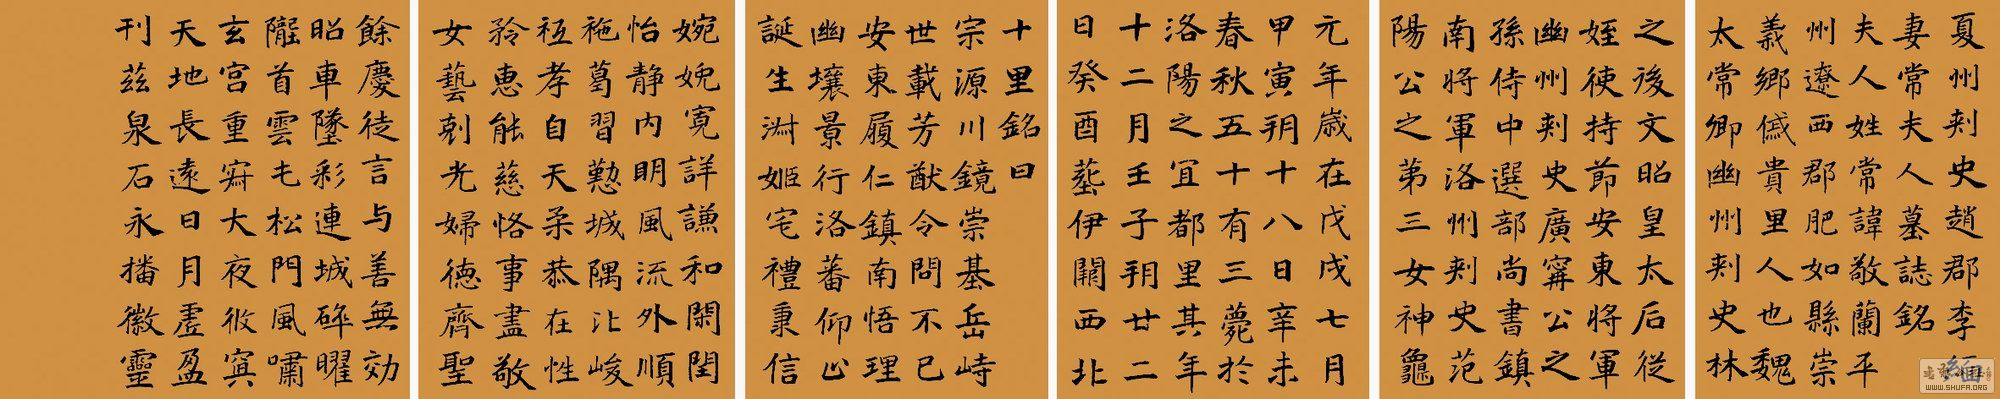 夏州刾史趙郡李緬
妻常夫人墓誌銘
夫人姓常諱敬蘭平
州遼西郡肥如縣崇
義鄉貴里人也魏
太常卿幽州刾史林
之後文昭皇太后從
姪使持節安東將軍
幽州刾史廣寗公之
孫侍中選部尚書鎮
南將軍洛州刾史范
陽公之第三女神龜
元年歲在戊戌七月
甲寅朔十八日辛未
春秋五十有三薨於
洛陽之宜都里其年
十二月壬子朔廿二
日癸酉葬伊闕西北
十里銘曰
宗源川鏡崇基岳峙
世載芳猷令問不已
安東履仁鎮南悟理
幽壤景行洛蕃仰止
誕生淑姬宅禮秉信
婉娩寬詳謙和閑閏
怡静内明風流外順
袘葛習懃城隅比峻
衹孝自天柔恭在性
矜惠能慈恪事盡敬
女藝剋光婦德齊聖
餘慶徒言与善無効
昭車墜彩連城碎曜
隴首雲屯松門風嘯
玄宫重大夜攸寘
天地長遠日月虛盈
刊茲泉石永播徽靈
WWW.SHUFA.ORG